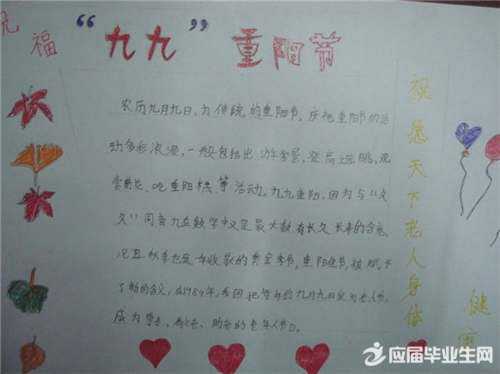 祝福
“九九”重阳节
农历九月九日,为传统的重阳节,庆祝重阳节的活
动多彩浪漫,一般包括出游赏景、登高远眺、观
赏菊花、吃重阳糕、等活动。九九重阳,因为与“久
久”同音九在数字中又是最大数有长久长寿的含意,
况且秋季也是一年收获的黄金季节,重阳佳节,被赋予
了新的含义,在1989年,我国把每年的九月九日定为老人节,
成为尊老、敬老、助老的老年人节日。
祝愿天下老人身体
健康
应届毕业生网